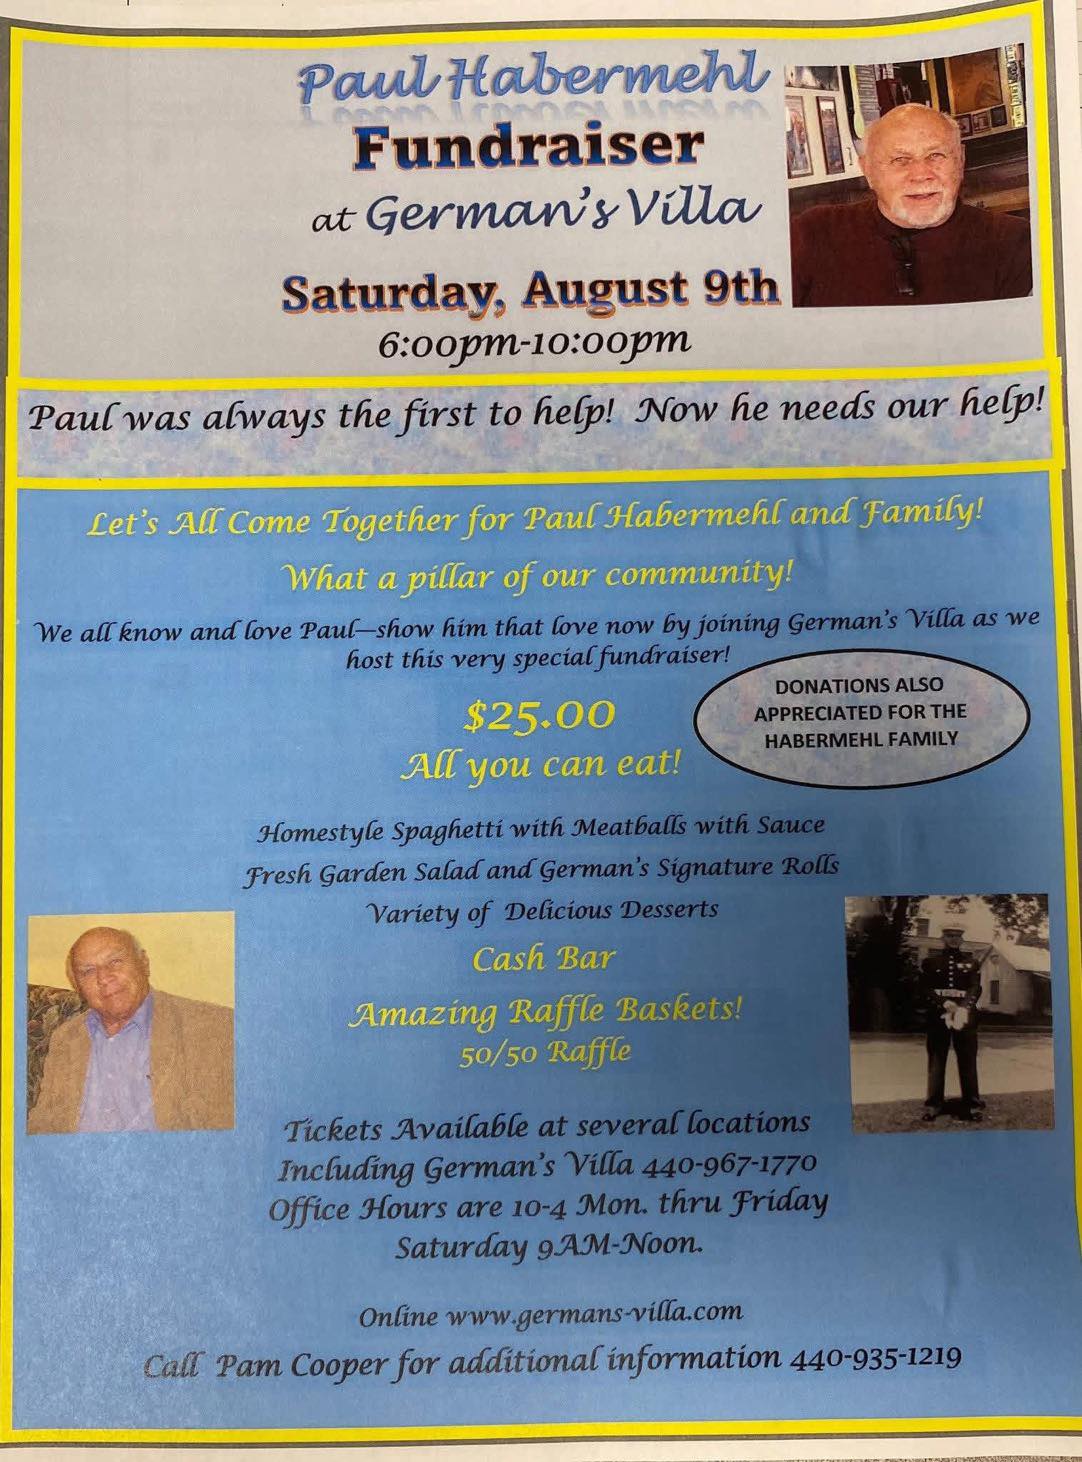 Paul Habermehl
Fundraiser
at German's Villa
Saturday, August 9th
6:00pm-10:00pm
Paul was always the first to help! Now he needs our help!
Let's All Come Together for Paul Habermehl and Family!
What a pillar of our community!
We all know and love Paul—show him that love now by joining German's Villa as we
host this very special fundraiser!
$25.00
All you can eat!
DONATIONS ALSO
APPRECIATED FOR THE
HABERMEHL FAMILY
Homestyle Spaghetti with Meatballs with Sauce
Fresh Garden Salad and German's Signature Rolls
Variety of Delicious Desserts
Cash Bar
Amazing Raffle Baskets!
50/50 Raffle
Tickets Available at several locations
Including German's Villa 440-967-1770
Office Hours are 10-4 Mon. thru Friday
Saturday 9AM-Noon.
Online www.germans-villa.com
Call Pam Cooper for additional information 440-935-1219